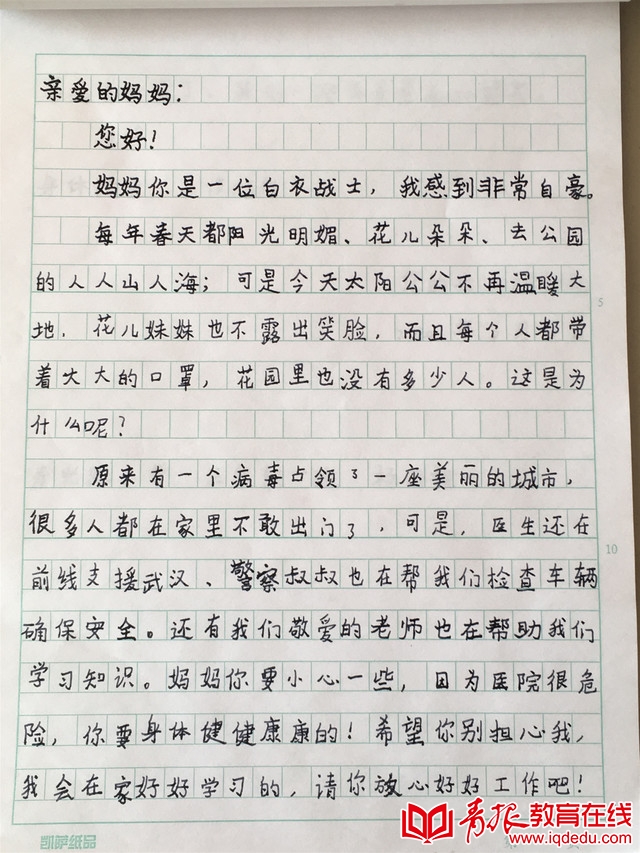 亲爱的妈妈：
您好！
妈妈你是一位白衣战士，我感到非常自豪。
每年春天都阳光明媚、花儿朵朵、去公园
的人人山人海；可是今天太阳公公不再温暖大
地．花儿妹妹也不露出笑脸，而且每个人都带
着大大的口罩，花园里也没有多少人。这是为
什么呢？
原来有一个病毒占领了一座美丽的城市，
很多人都在家里不敢出门了，可是，医生还在
前线支援武汉、警察叔叔也在帮我们检查车辆
确保安全。还有我们敬爱的老师也在帮助我们
学习知识。妈妈你要小心一些，因为医院很危
险，你要身体健健康康的！希望你别担心我，
我会在家好好学习的，请你放心好好工作吧！
5
10
凯萨纸品
第
页
青报教育在线
www.iqdedu.com